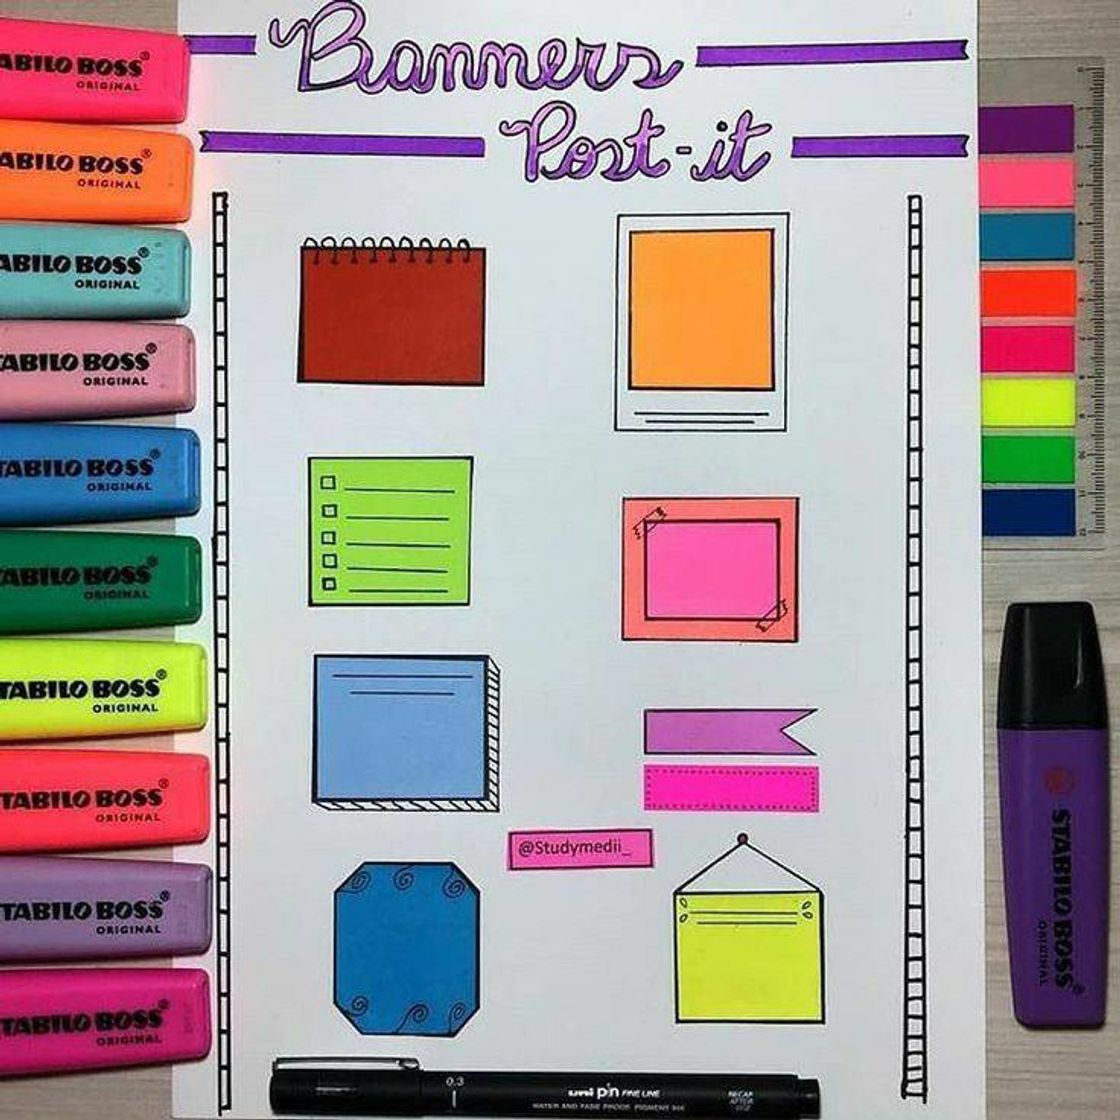 Banners
Post-it
@Studymedii_
ABILO BOSS®
ORIGINAL
ABILO BOSS®
ORIGINAL
ABILO BOSS®
ORIGINAL
TABILO BOSS®
ORIGINAL
TABILO BOSS®
ORIGINAL
TABILO BOSS®
ORIGINAL
TABILO BOSS®
ORIGINAL
TABILO BOSS®
ORIGINAL
TABILO BOSS®
ORIGINAL
TABILO BOSS®
ORIGINAL
STABILO BOSS®
ORIGINAL
0.3
uni pin FINE LINE
WATER AND FADE PROOF, PIGMENT INK
RECAP
AFTER
USE